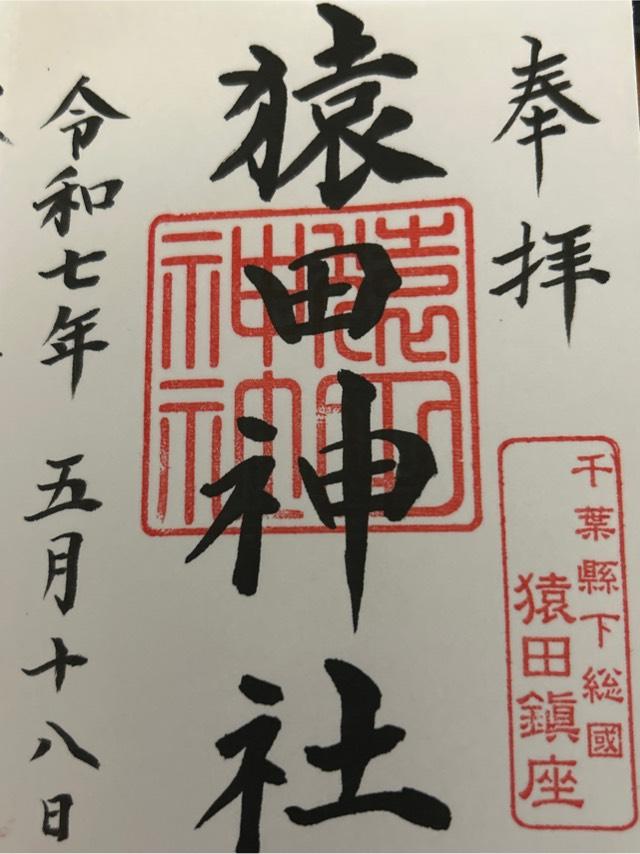 奉拝
千葉縣下総國
猿田鎭座
猿田神社
猿田神社
令和七年 五月十八日